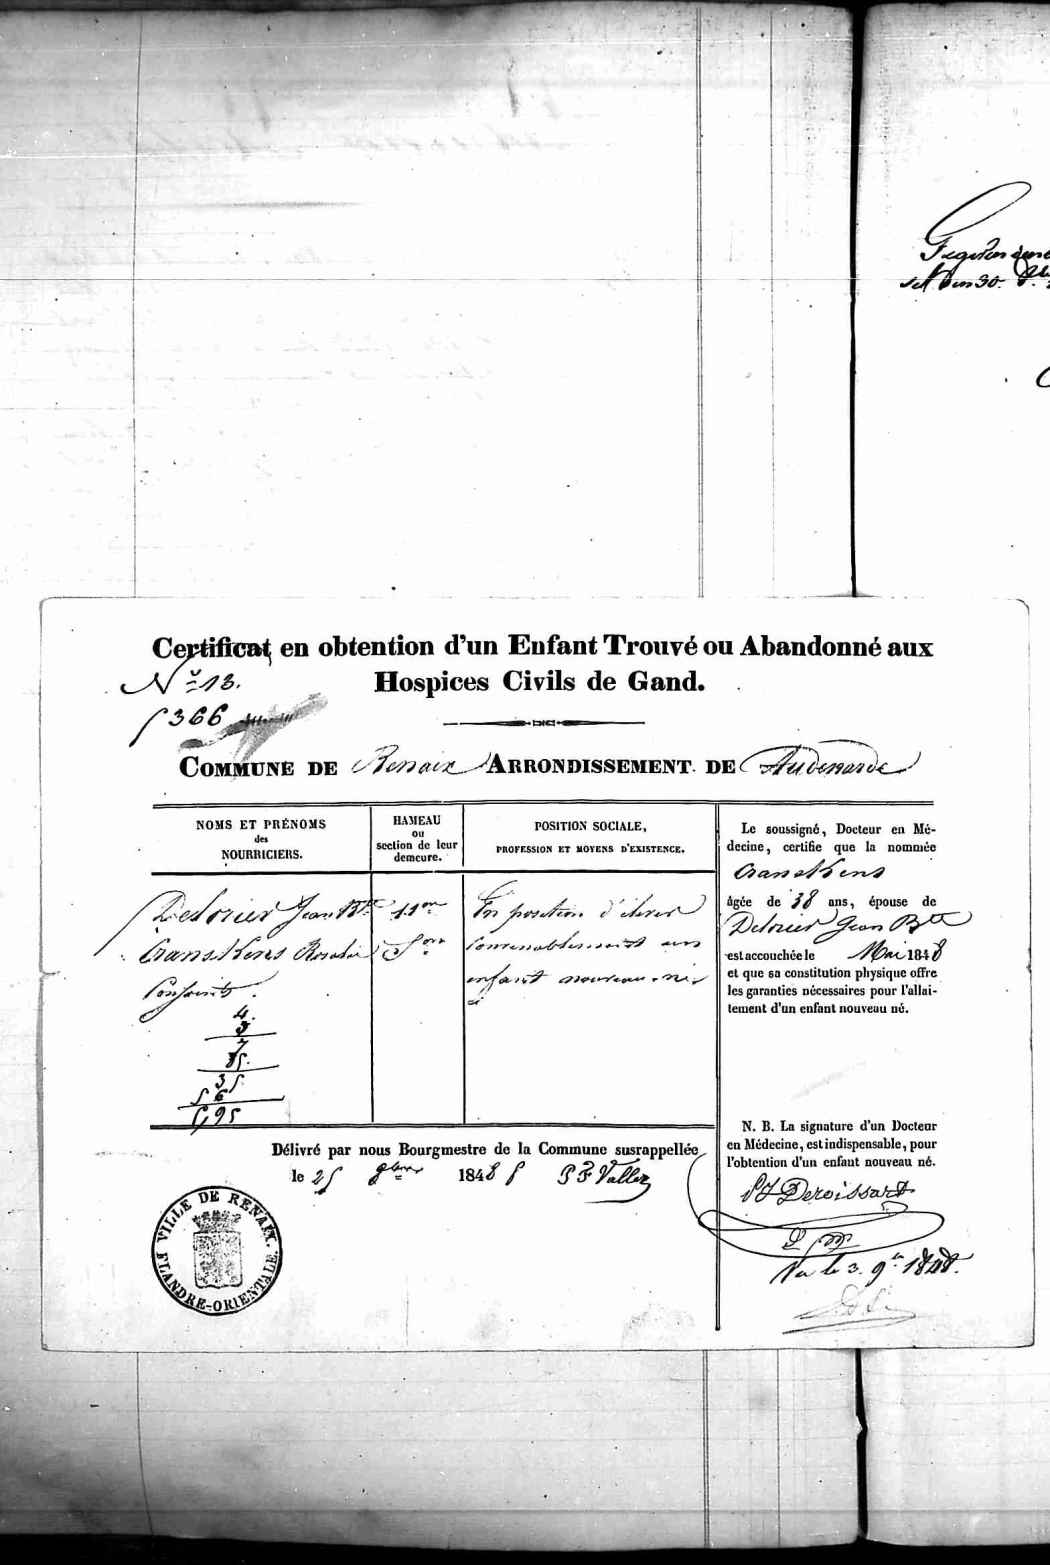 Certificat en obtention d'un Enfant Trouvé ou Abandonné aux
Hospices Civils de Gand.
Nº 13.
5366
COMMUNE DE Renaix ARRONDISSEMENT DE Audenarde
NOMS ET PRÉNOMS
des
NOURRICIERS.
HAMEAU
ou
section de leur
demeure.
POSITION SOCIALE,
PROFESSION ET MOYENS D'EXISTENCE.
Delorier Jean Bte
Cranskens Rosalie
Conjoints.
4.
3
7
35
56
595
11on
Son
En position d'élever
convenablement un
enfant nouveau-né
Le soussigné, Docteur en Mé-
decine, certifie que la nommée
Cranskens
âgée de 38 ans, épouse de
Delorier Jean Bte
est accouchée le Mai 1848
et que sa constitution physique offre
les garanties nécessaires pour l'allai-
tement d'un enfant nouveau né.
N. B. La signature d'un Docteur
en Médecine, est indispensable, pour
l'obtention d'un enfant nouveau né.
Délivré par nous Bourgmestre de la Commune susrappellée
le 25 8bre 1848
Vu le 3. 9bre 1848.
VILLE DE RENAIX.
FLANDRE-ORIENTALE.
den 30.